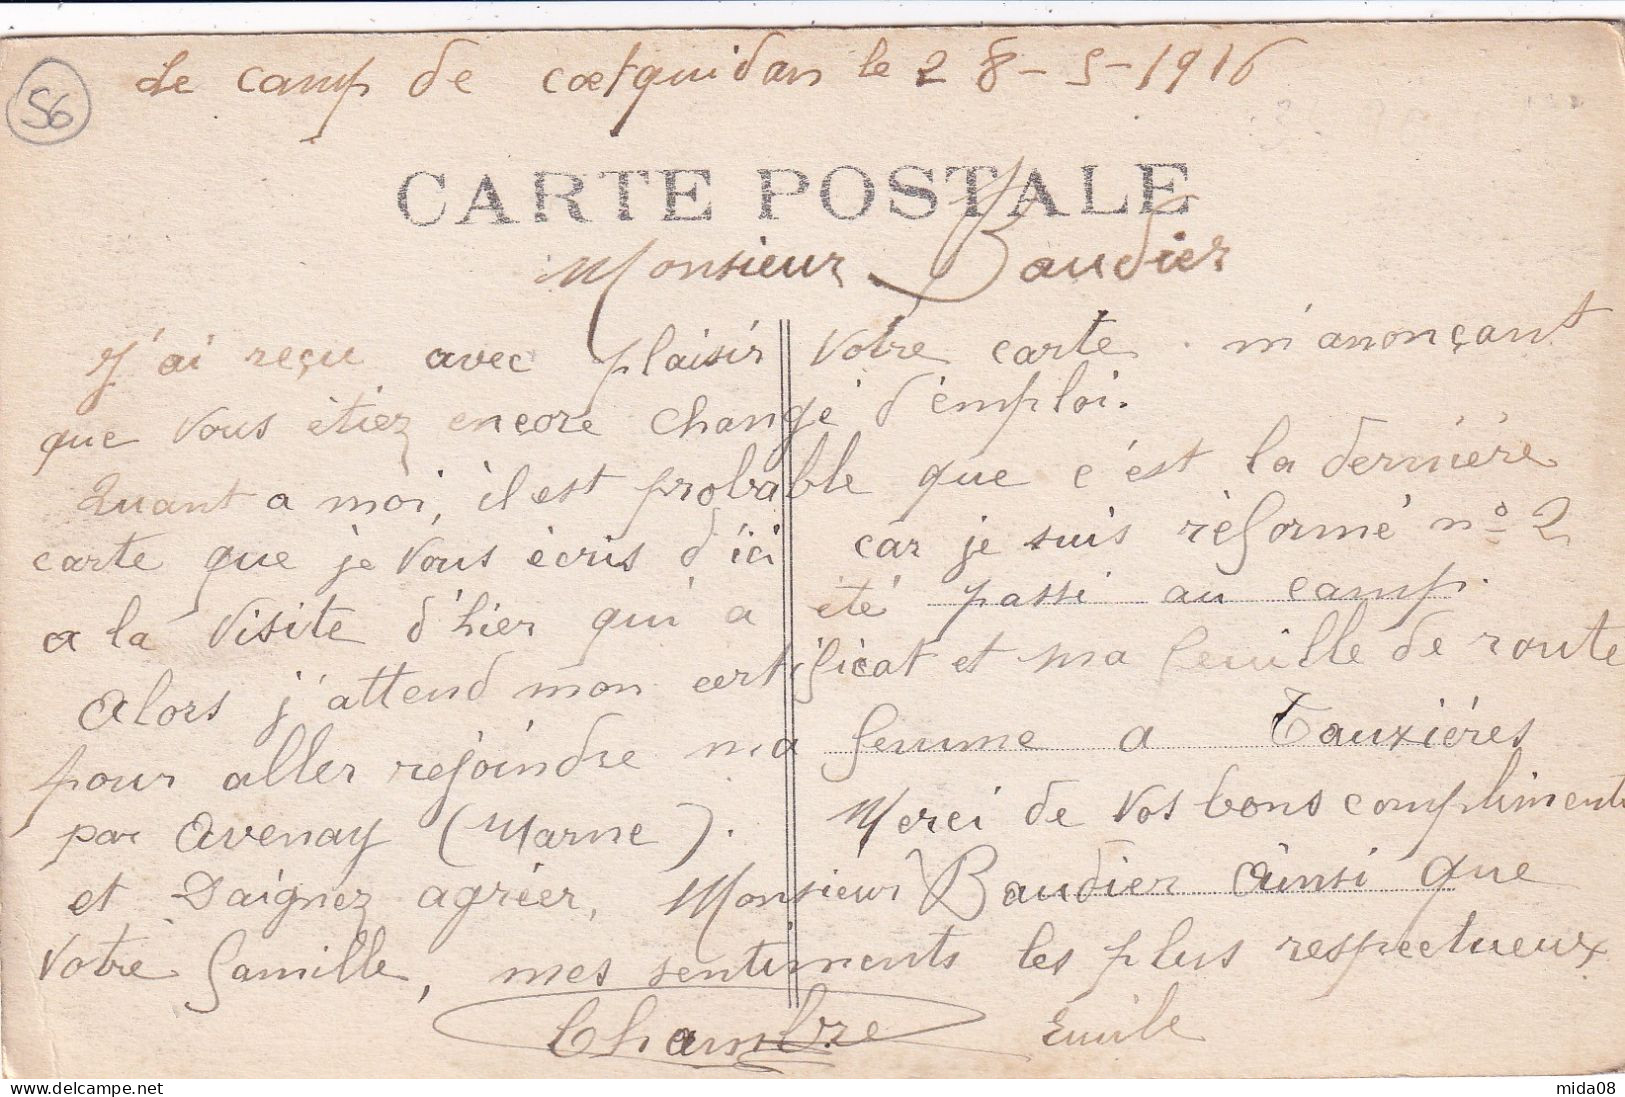 Le camp de coetquidan le 28-5-1916
56
CARTE POSTALE
Monsieur Baudier
J'ai reçu avec plaisir votre carte m'anonçant
que vous étiez encore changé d'emploi.
Quant a moi, il est probable que c'est la dernière
carte que je vous écris d'ici car je suis réformé n° 2
a la visite d'hier qui a été passé au camp.
Alors j'attend mon certificat et ma feuille de route
pour aller rejoindre ma femme a Tauxiéres
par Avenay (Marne). Merci de vos bons compliments
et Daignez agréer, Monsieur Baudier ainsi que
votre famille, mes sentiments les plus respectueux
Chambre Emile
mida08